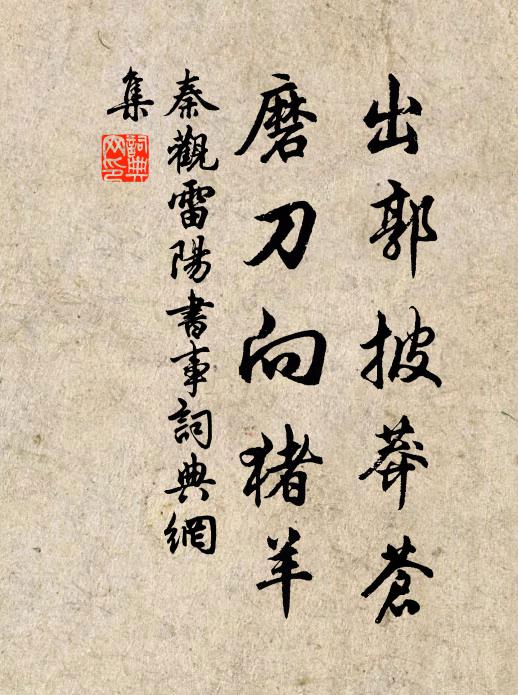 出郭披莽蒼
磨刀向猪羊
秦觀雷陽書事詞典網
集
詞典
网印